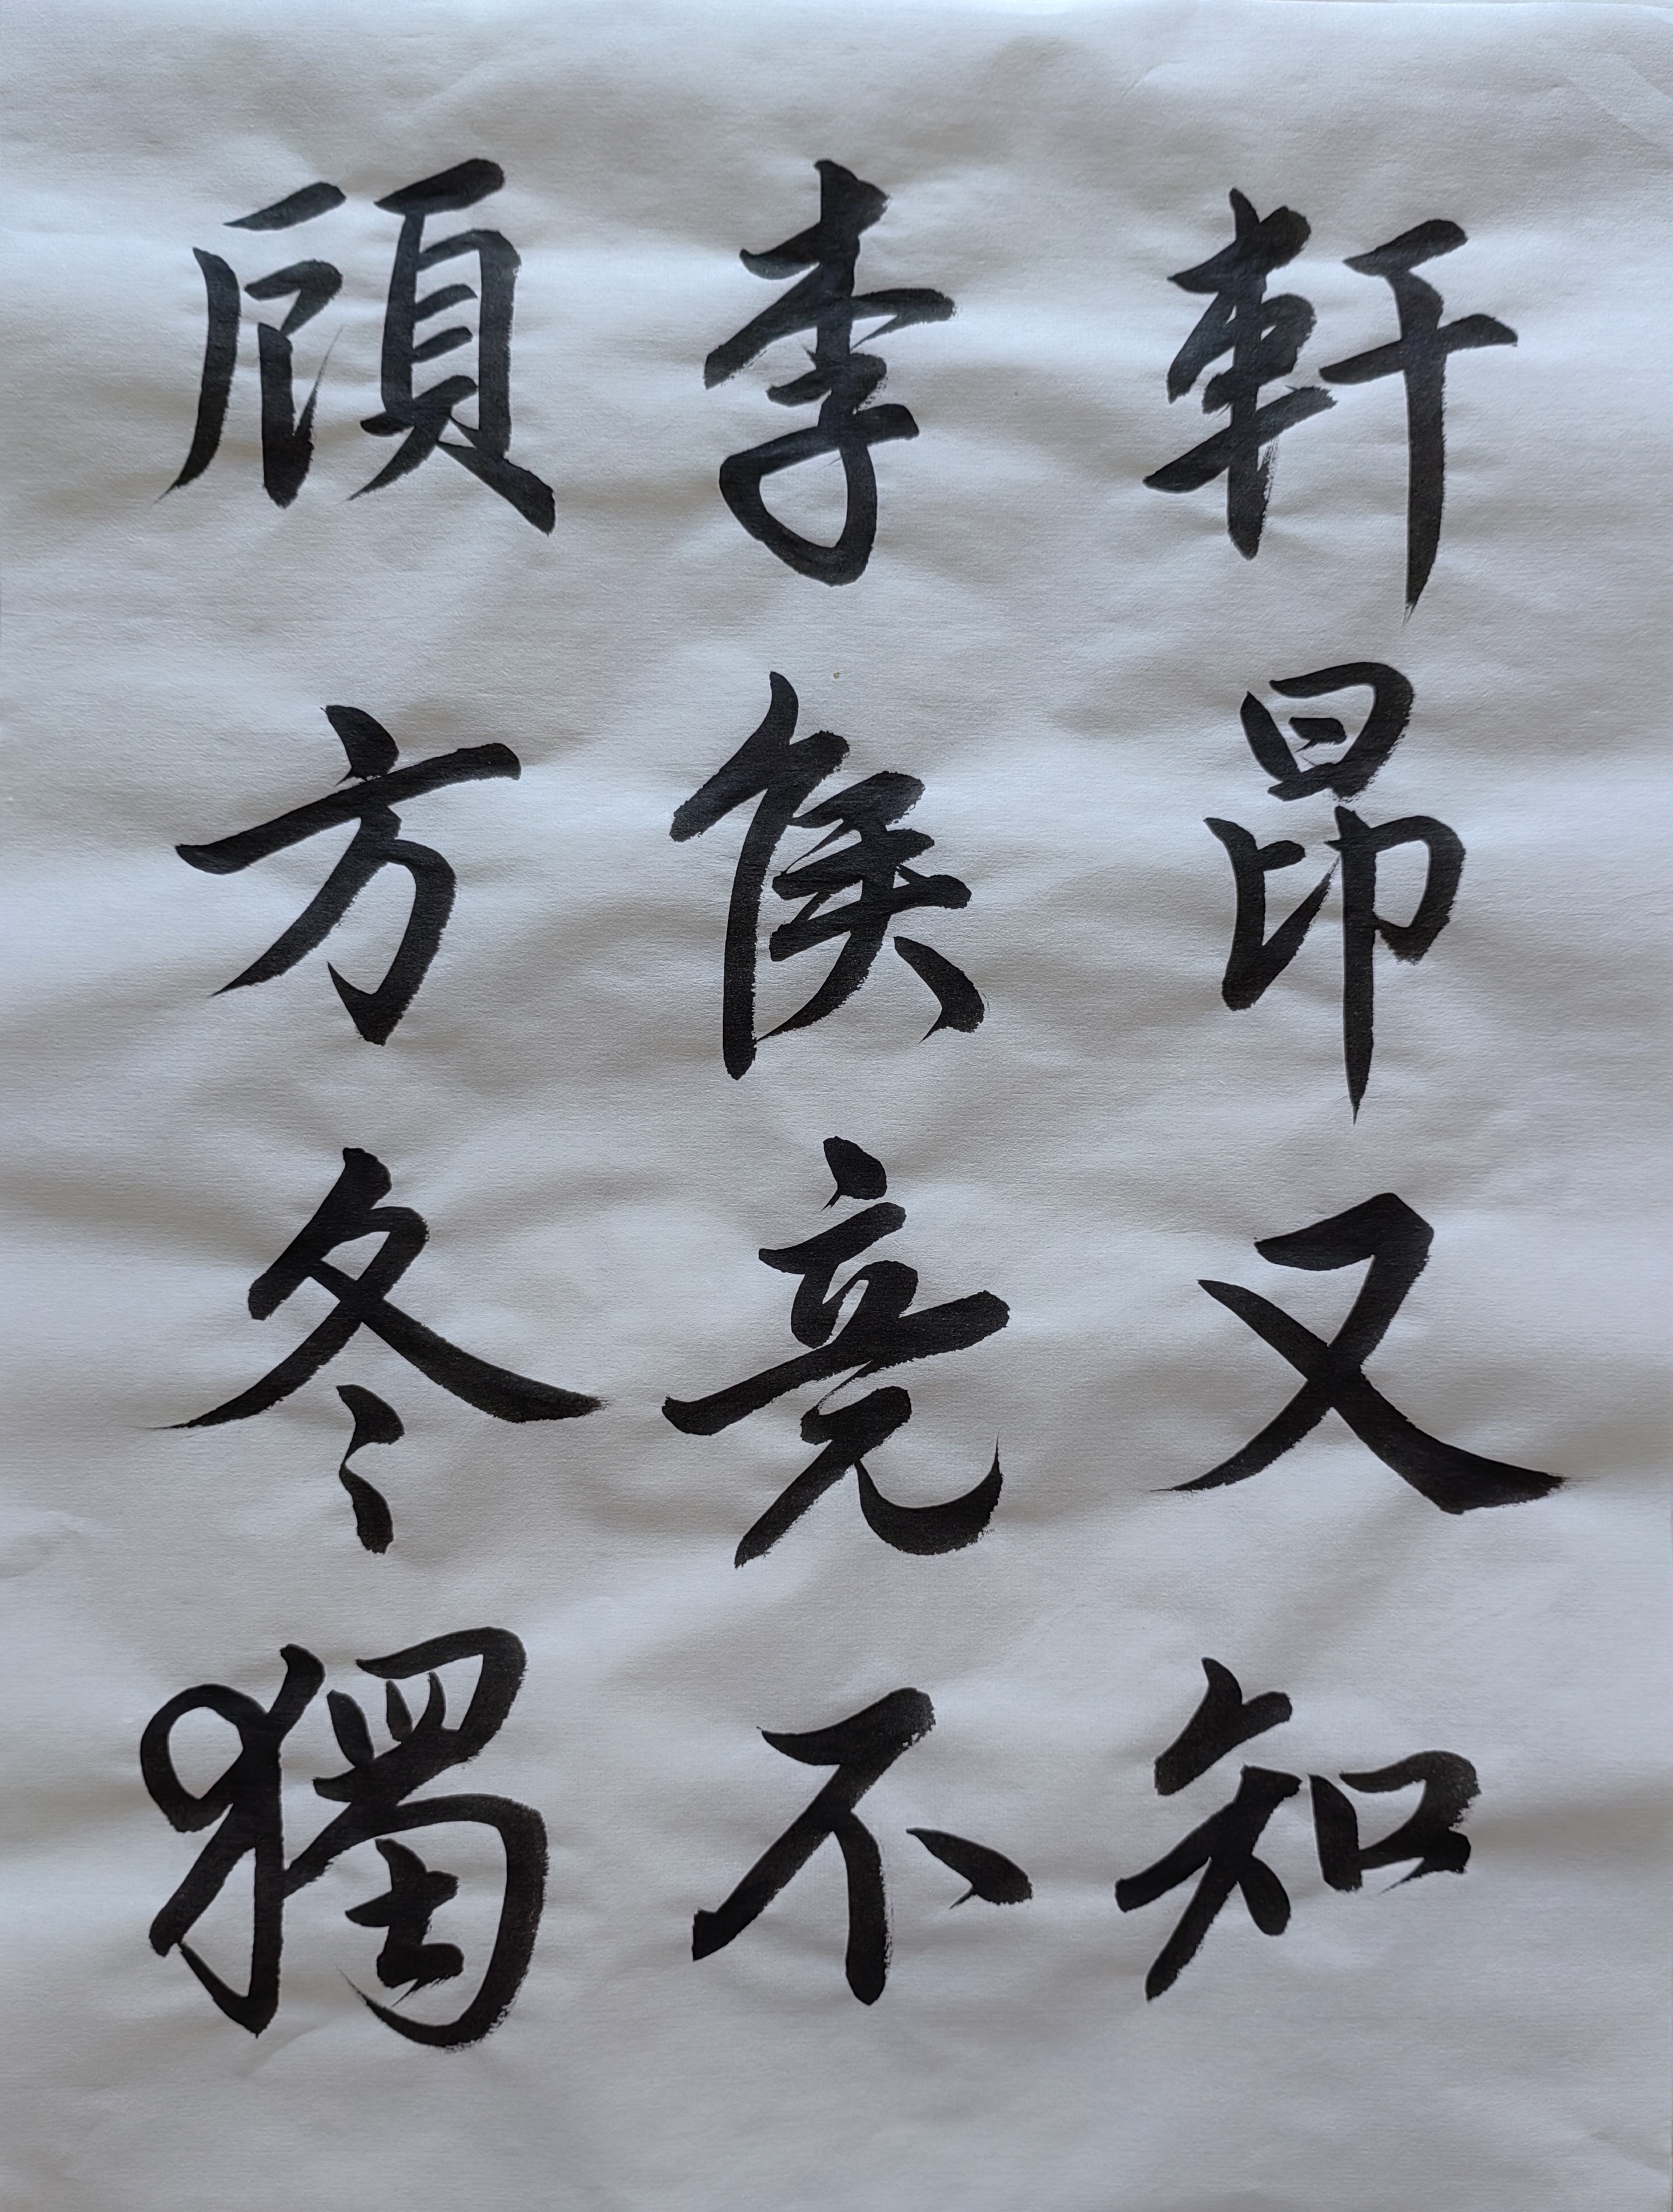 軒昂又知
李侯竟不
頋方冬獨